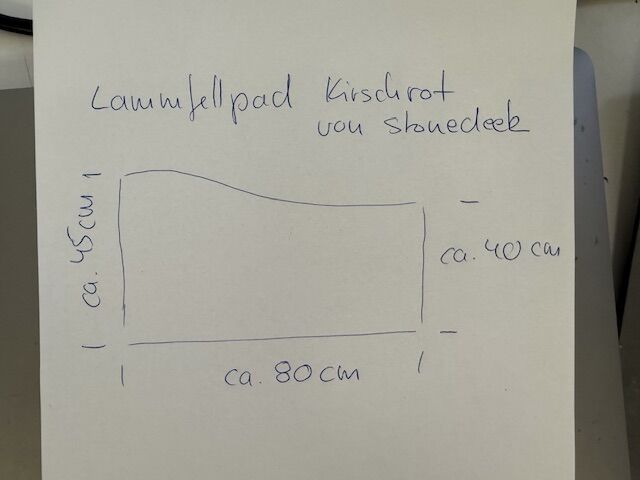 Lammfellpad Kirschrot
von stonedeek
ca. 45cm
ca. 40 cm
ca. 80 cm